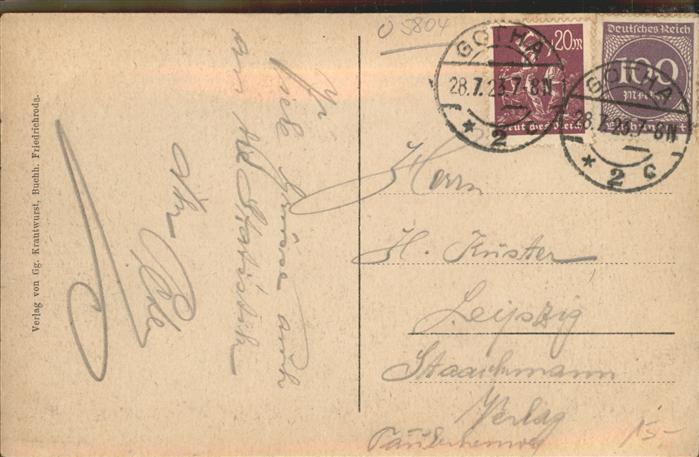 O 5804
20m
Deutsches Reich
Deutsches Reich
100
Mark
GOTHA
28.7.23.7-8N
* 2
GOTHA
28.7.23.7-8N
* 2 c
viele Grüsse auch
an die Statistik
Verlag von Gg. Krautwurst, Buchh. Friedrichroda.
Herrn
H. Küster
Leipzig
Staackmann
Verlag
15-